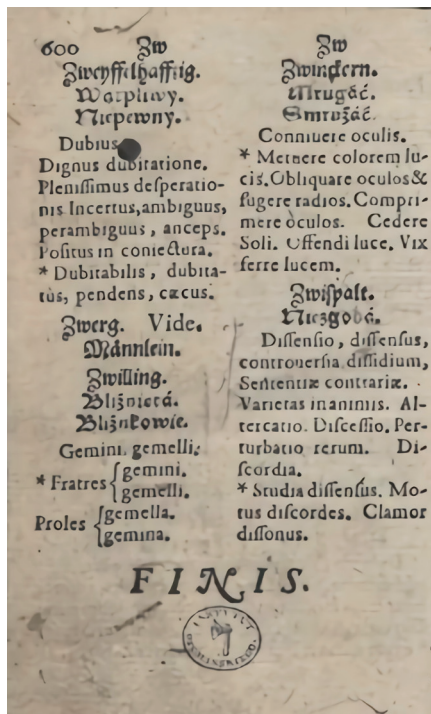 600 Zw
Zweyffelhafftig.
Watpliwy.
Niepewny.
Dubius
Dignus dubitatione.
Pleniſſimus deſperatio-
nis Incertus, ambiguus,
perambiguus, anceps.
Poſitus in coniectura.
* Dubitabilis, dubita-
tus, pendens, cæcus.
Zwerg. Vide.
Männlein.
Zwilling.
Bliźniętá.
Bliźnkowie.
Gemini. gemelli.
* Fratres {gemini.
gemelli.
Proles {gemella.
gemina.
Zw
Zwinckern.
Mrugáć.
Smrużáć.
Conniuere oculis.
* Metuere colorem lu-
cis. Obliquare oculos &
fugere radios. Compri-
mere oculos. Cedere
Soli. Offendi luce. Vix
ferre lucem.
Zwiſpalt.
Niezgodá.
Diſſenſio, diſſenſus,
controuerſia diſſidium,
Sententiæ contrariæ.
Varietas in animis. Al-
tercatio. Diſceſſio. Per-
turbatio rerum. Di-
ſcordia.
* Studia diſſenſus. Mo-
tus diſcordes. Clamor
diſſonus.
FINIS.
INSTYTUT
OSSOLIŃSKIEGO